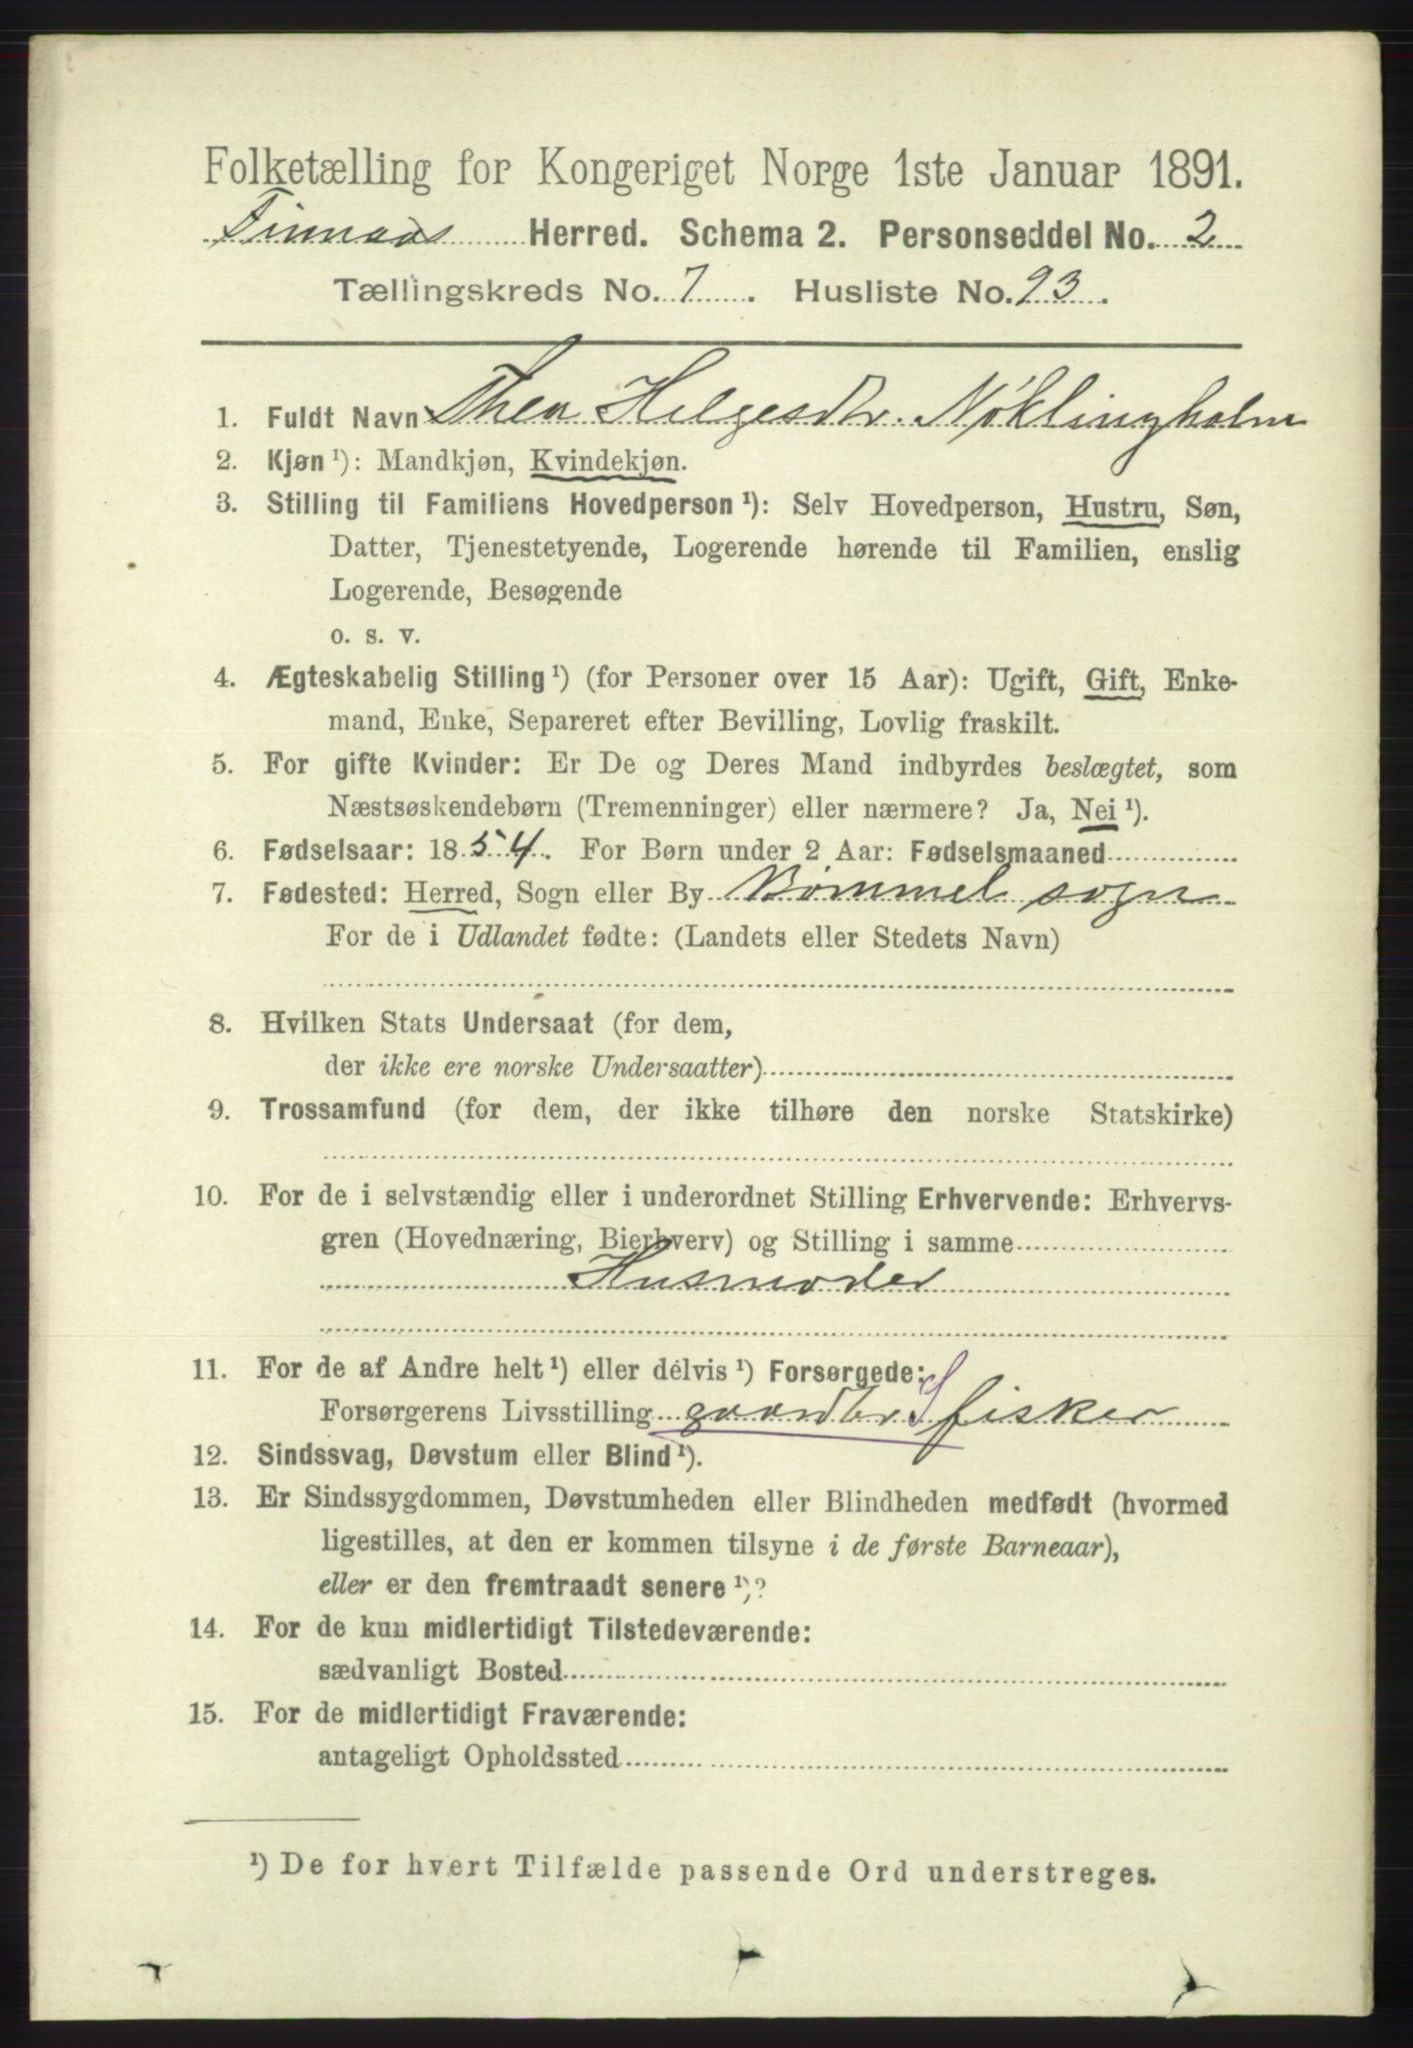 Folketælling for Kongeriget Norge 1ste Januar 1891.
Finnaas Herred. Schema 2. Personseddel No. 2
Tællingskreds No. 7. Husliste No. 93.
1. Fuldt Navn Thea Helgesdtr. Nøklingholm
2. Kjøn ¹): Mandkjøn, Kvindekjøn.
3. Stilling til Familiens Hovedperson ¹): Selv Hovedperson, Hustru, Søn,
Datter, Tjenestetyende, Logerende hørende til Familien, enslig
Logerende, Besøgende
o. s. v.
4. Ægteskabelig Stilling ¹) (for Personer over 15 Aar): Ugift, Gift, Enke-
mand, Enke, Separeret efter Bevilling, Lovlig fraskilt.
5. For gifte Kvinder: Er De og Deres Mand indbyrdes beslægtet, som
Næstsøskendebørn (Tremenninger) eller nærmere? Ja, Nei ¹).
6. Fødselsaar: 1854. For Børn under 2 Aar: Fødselsmaaned
7. Fødested: Herred, Sogn eller By Bømmel sogn
For de i Udlandet fødte: (Landets eller Stedets Navn)
8. Hvilken Stats Undersaat (for dem,
der ikke ere norske Undersaatter)
9. Trossamfund (for dem, der ikke tilhøre den norske Statskirke)
10. For de i selvstændig eller i underordnet Stilling Erhvervende: Erhvervs-
gren (Hovednæring, Bierhverv) og Stilling i samme
Husmoder
11. For de af Andre helt ¹) eller delvis ¹) Forsørgede:
Forsørgerens Livsstilling gaardbr. S fisker
12. Sindssvag, Døvstum eller Blind ¹).
13. Er Sindssygdommen, Døvstumheden eller Blindheden medfødt (hvormed
ligestilles, at den er kommen tilsyne i de første Barneaar),
eller er den fremtraadt senere ¹)?
14. For de kun midlertidigt Tilstedeværende:
sædvanligt Bosted
15. For de midlertidigt Fraværende:
antageligt Opholdssted
¹) De for hvert Tilfælde passende Ord understreges.